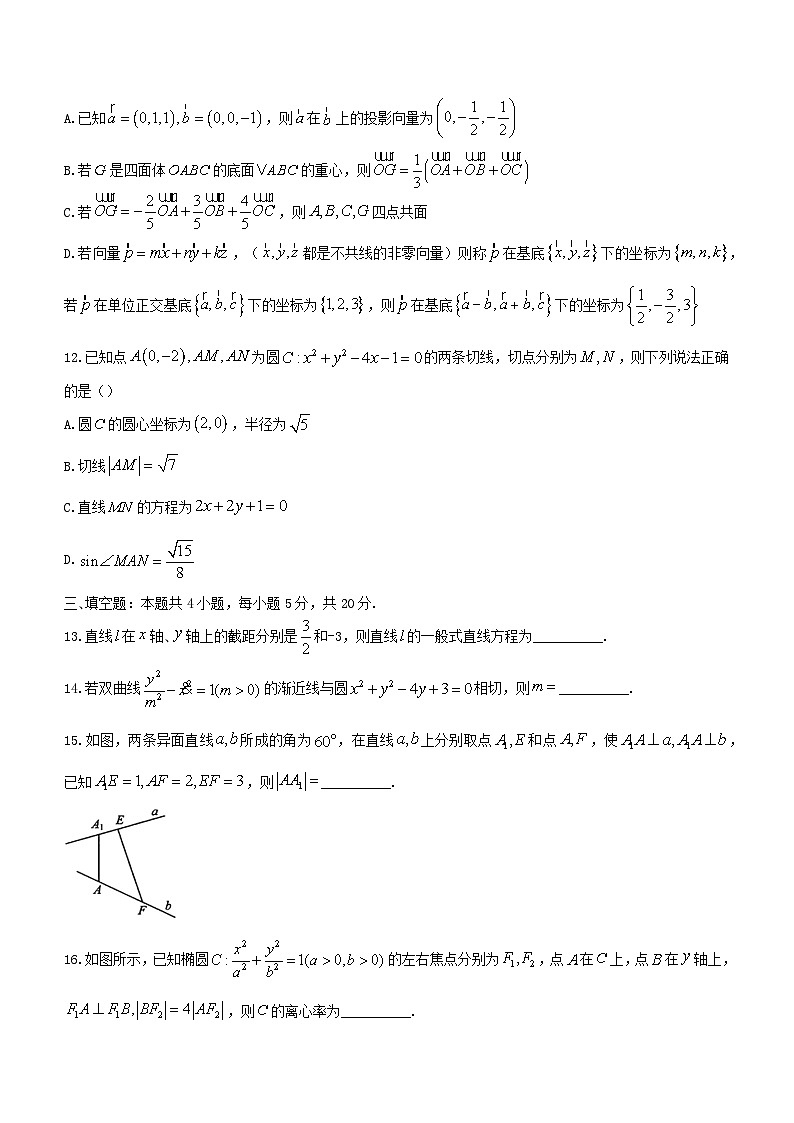 A.已知a⃗ = (0,1,1), b⃗ = (0,0,−1)，则a⃗在b⃗上的投影向量为(0,−1/2,−1/2)
B.若G是四面体OABC的底面VABC的重心，则OG = 1/3(OA + OB + OC)
C.若OG = −2/5 OA + 3/5 OB + 4/5 OC，则A,B,C,G四点共面
D.若向量p = mx + ny + kz，（x,y,z都是不共线的非零向量）则称p在基底{x,y,z}下的坐标为{m,n,k}，
若p在单位正交基底{a,b,c}下的坐标为{1,2,3}，则p在基底{a−b,a+b,c}下的坐标为{1/2,−3/2,3}
12.已知点A(0,−2),AM,AN为圆C:x²+y²−4x−1=0的两条切线，切点分别为M,N，则下列说法正确
的是()
A.圆C的圆心坐标为(2,0)，半径为√5
B.切线|AM| = √7
C.直线MN的方程为2x+2y+1=0
D.sin∠MAN = √15/8
三、填空题：本题共4小题，每小题5分，共20分.
13.直线l在x轴、y轴上的截距分别是3/2和-3，则直线l的一般式直线方程为__________.
14.若双曲线y²/m² − x² = 1(m>0)的渐近线与圆x²+y²−4y+3=0相切，则m=__________.
15.如图，两条异面直线a,b所成的角为60°，在直线a,b上分别取点A₁,E和点A,F，使A₁A⊥a,A₁A⊥b，
已知A₁E=1,AF=2,EF=3，则|AA₁|=__________.
A₁ E a
A F b
16.如图所示，已知椭圆C:x²/a²+y²/b²=1(a>0,b>0)的左右焦点分别为F₁,F₂，点A在C上，点B在y轴上，
F₁A⊥F₁B,|BF₂|=4|AF₂|，则C的离心率为__________.